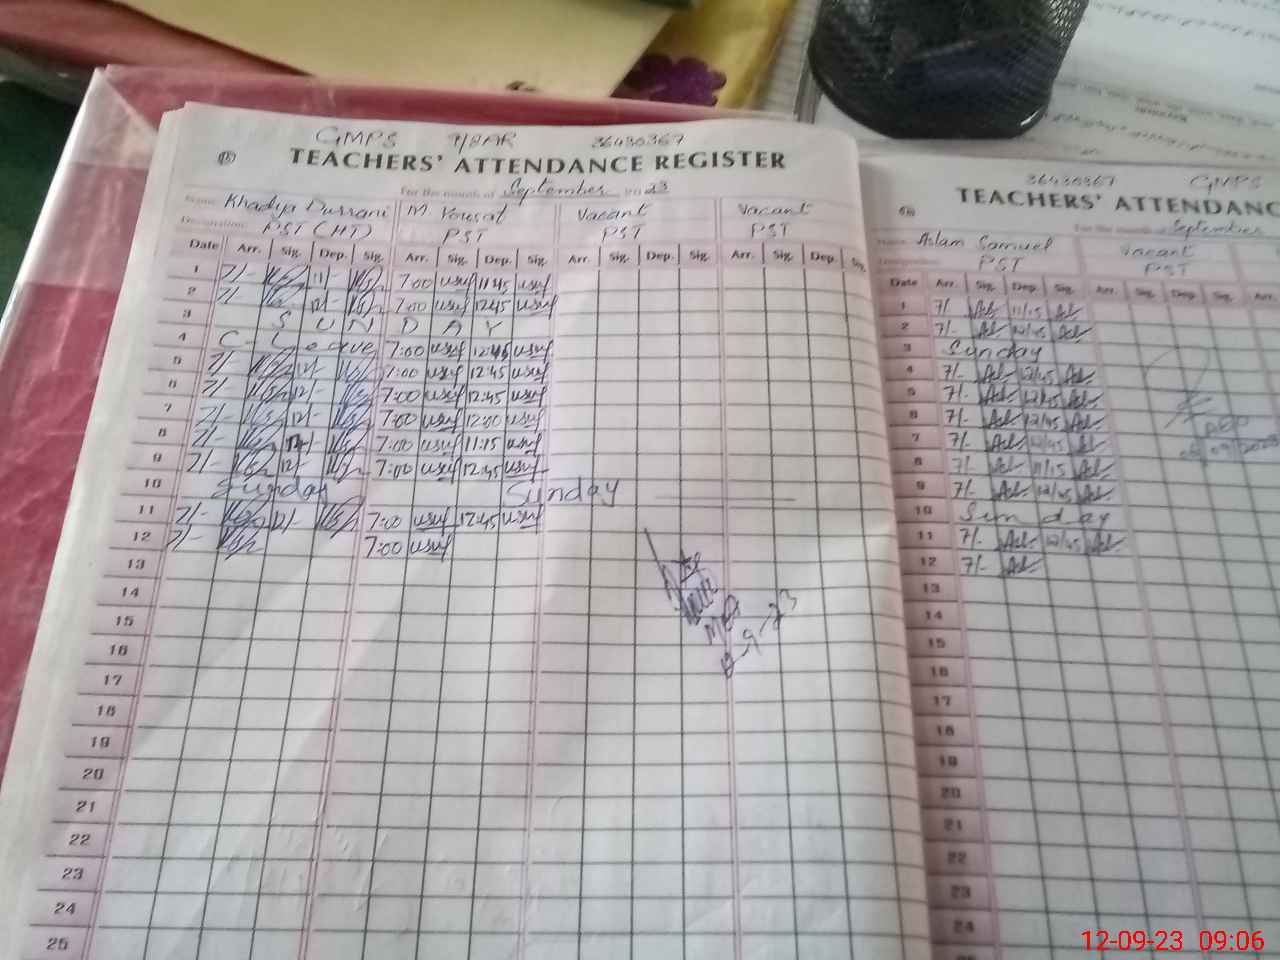 GMPS 9/8AR 36430367
TEACHERS' ATTENDANCE REGISTER
For the month of September 2023
Name Khadija Durrani M. Yousaf Vacant Vacant
Designation PST (HT) PST PST PST
Date Arr. Sig. Dep. Sig. Arr. Sig. Dep. Sig. Arr. Sig. Dep. Sig. Arr. Sig. Dep. Sig.
1 7/- 11/- 7:00 usuf 11:45 usuf
2 7/- 12/- 7:00 usuf 12:45 usuf
3 SUNDAY
4 C-Leave 7:00 usuf 12:45 usuf
5 7/- 12/- 7:00 usuf 12:45 usuf
6 7/- 12/- 7:00 usuf 12:45 usuf
7 7/- 12/- 7:00 usuf 12:00 usuf
8 7/- 7:00 usuf 11:15 usuf
9 7/- 12/- 7:00 usuf 12:45 usuf
10 Sunday Sunday
11 7/- 12/- 7:00 usuf 12:45 usuf
12 7/- 7:00 usuf
13
14
15
16
17
18
19
20
21
22
23
24
25
-9-23
36430367 GMPS
TEACHERS' ATTENDANC
For the month of September
Name Aslam Samuel Vacant
PST PST
Date Arr. Sig. Dep. Sig. Arr. Sig. Dep. Sig. Arr.
1 7/- 11/15
2 7/- 12/45
3 Sunday
4 7/- 12/45
5 7/- 12/45
6 7/- 12/45
7 7/- 12/45
8 7/- 11/15
9 7/- 12/45
10 Sunday
11 7/- 12/45
12 7/-
13
14
15
16
17
18
19
20
21
22
23
24
12-09-23 09:06